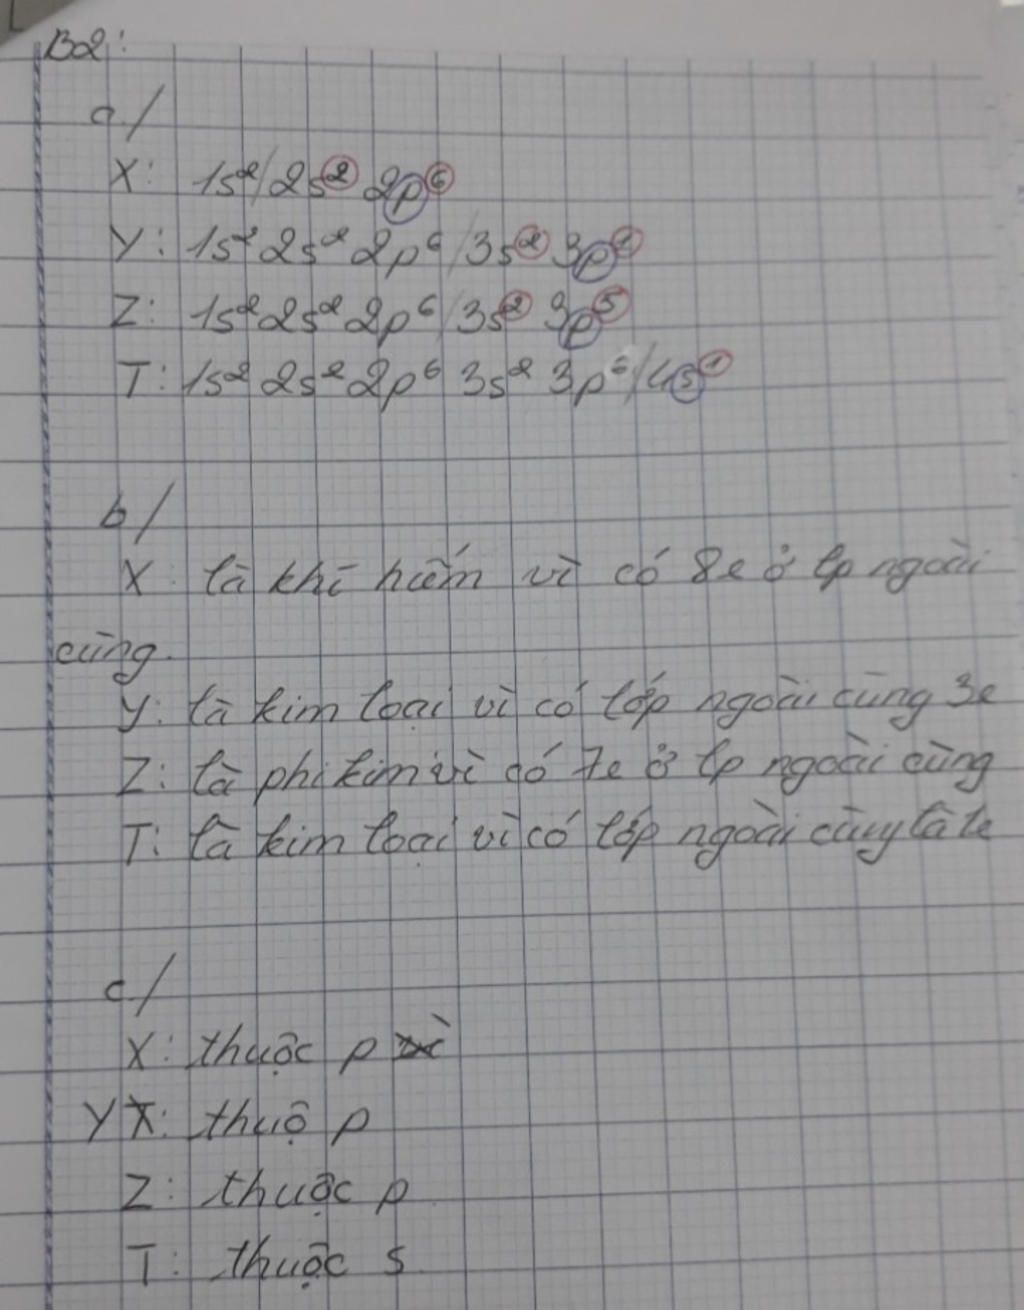 B2:
a/
X: 1s² / 2s² 2p⁶
Y: 1s² 2s² 2p⁶ / 3s² 3p¹
Z: 1s² 2s² 2p⁶ / 3s² 3p⁵
T: 1s² 2s² 2p⁶ 3s² 3p⁶ / 4s¹
b/
X là khí hiếm vì có 8e ở lp ngoài
cùng.
Y: là kim loại vì có lớp ngoài cùng 3e
Z: là phi kim vì có 7e ở lp ngoài cùng
T: là kim loại vì có lớp ngoài cùng là 1e
c/
X: thuộc p
Y: thuộ p
Z: thuộc p
T: thuộc s